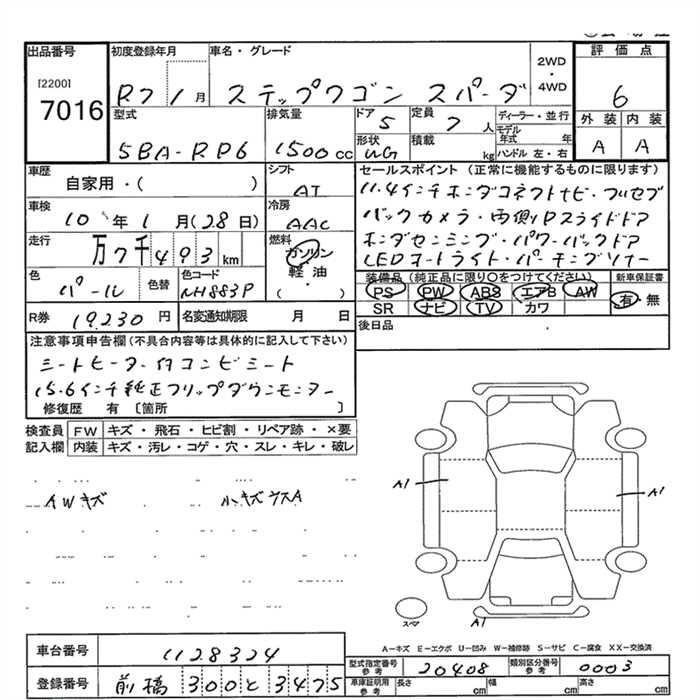 出品番号
[2200]
7016
初度登録年月
R7 1月
車名・グレード
ステップワゴン スパーダ
2WD
・
4WD
評価点
6
型式
5BA-RP6
排気量
1500cc
ドア 5
定員 7人
形状 WG
積載 kg
ディーラー・並行
モデル年式 年
ハンドル 左・右
外装 内装
A A
車歴
自家用・( )
シフト
AT
セールスポイント(正常に機能するものに限ります)
11.4インチホンダコネクトナビ・フルセグ
バックカメラ・両側Pスライドドア
ホンダセンシング・パワーバックドア
LEDヘッドライト・パーキングソナー
車検
10年1月(28日)
冷房
AAC
走行
万7千493km
燃料
ガソリン
軽油
( )
色
パール
色替
色コード
NH883P
装備品(純正品に限り○をつけてください)
PS PW ABS エアB AW
SR ナビ TV カワ
新車保証書
有・無
R券 19230円
名変通知期限 月 日
後日品
注意事項申告欄(不具合内容等は具体的に記入して下さい)
シートヒーター付コンビシート
15.6インチ純正フリップダウンモニター
修復歴 有 〔箇所 〕
検査員記入欄
FW キズ・飛石・ヒビ割・リペア跡・×要
内装 キズ・汚レ・コゲ・穴・スレ・キレ・破レ
AWキズ
小キズウスA
A1
A1
スマ
A1
A-キズ E-エクボ U-凹み W-補修跡 S-サビ C-腐食 XX-交換済
車台番号 1128324
登録番号 前橋 300 と 3475
型式指定番号 参考 20408
類別区分番号 参考 0003
車庫証明用 参考
長さ cm
幅 cm
高さ cm